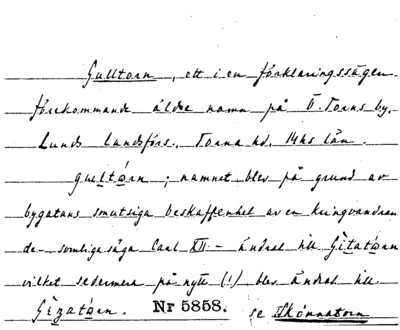 Gulltorn, ett i en förklaringssägen
förekommande äldre namn på Ö. Torns by,
Lunds landsförs., Torna hd, Mhs län.
gulltorn; namnet blev på grund av
bygatans smutsiga beskaffenhet av en kringvandran
de - somliga säga Carl XII - ändrat till
vilket sedermera på nytt (!) blev ändrat till
Nr 5858. se Skönnatorn